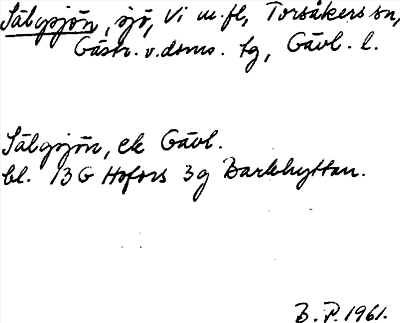 Sälgsjön, sjö, Vi m.fl, Torsåkers sn,
Gästr. v. dsms. tg, Gävl. l.
Sälgsjön, ek Gävl.
bl. 13G Hofors 3g Barkhyttan.
B. P. 1961.